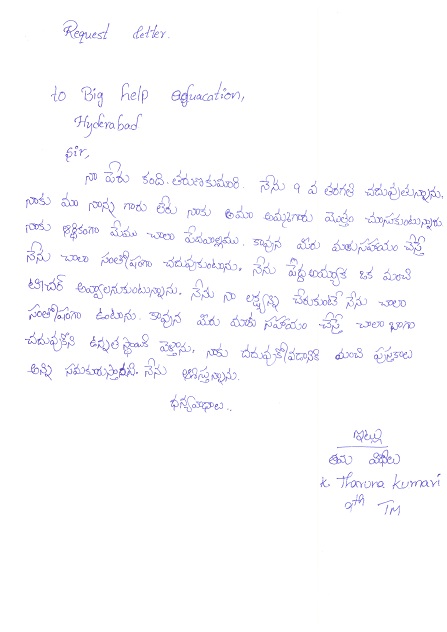 Request letter.
to Big help eduacation,
Hyderabad
Sir,
నా పేరు కంది. తరుణకుమారి. నేను 9 వ తరగతి చదువుతున్నాను.
నాకు మా నాన్న గారు లేరు నాకు అమ్మగారు మొత్తం చూసుకుంటున్నారు
నాకు ఆర్థికంగా మేము చాలా పేదవాల్లము. కావున మీరు మాకుసహాయం చేస్తే
నేను చాలా సంతోషంగా చదువుకుంటాను. నేను పెద్దఅయ్యాక ఒక మంచి
టీచర్ అవ్వాలనుకుంటున్నాను. నేను నా లక్ష్యాన్ని చేరుకుంటే నేను చాలా
సంతోషంగా ఉంటాను. కావున మీరు మాకు సహాయం చేస్తే చాలా బాగా
చదువుకొని ఉన్నత స్థాయికి వెళ్తాను, నాకు చదువుకోవడానికి మంచి పుస్తకాలు
అన్ని సమకూరుస్తారని. నేను ఆశిస్తున్నాను.
ధన్యవాదాలు..
ఇట్లు
తమ విధేయ
K. Tharuna Kumari
9th TM